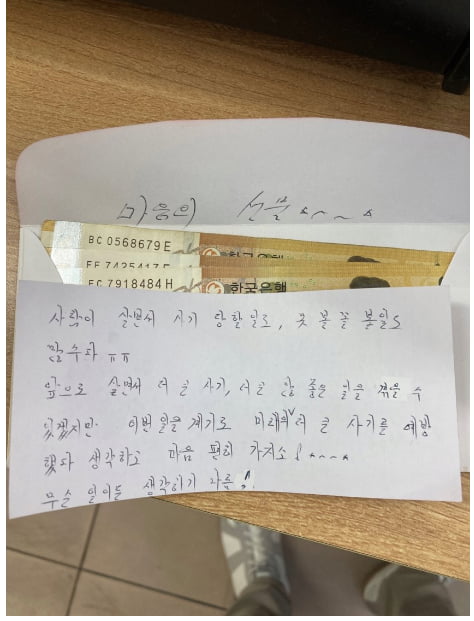 마음의 선물^~~^
BC 0568679 E
한국은행
EC 7918484 H
한국은행
사람이 살면서 사기 당할일도, 못 볼 꼴 볼일도
많수다 ㅠㅠ
앞으로 살면서 더 큰 사기, 더 큰 안 좋은 일을 겪을 수
있겠지만 이번 일을 계기로 미래의 더 큰 사기를 예방
했다 생각하고 마음 편히 가지소!^~~^
무슨 일이든 생각하기 나름!